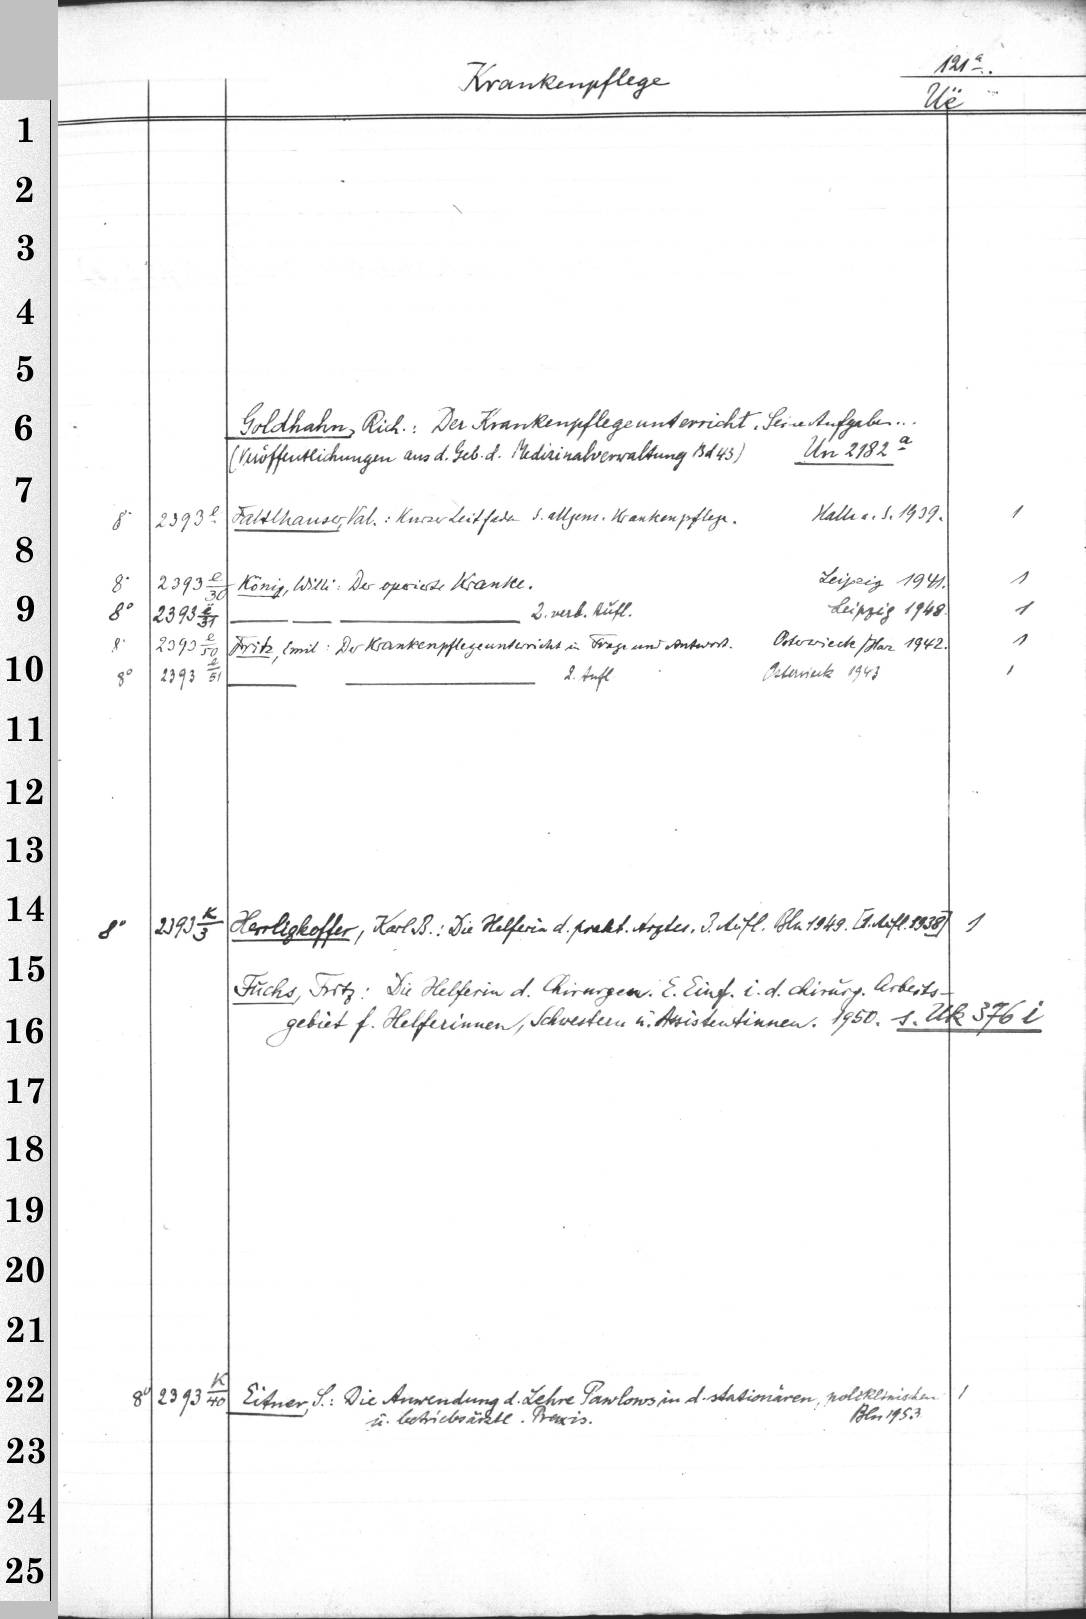 121ª.
Krankenpflege
Uë
1
2
3
4
5
6
7
8
9
10
11
12
13
14
15
16
17
18
19
20
21
22
23
24
25
Goldhahn, Rich.: Der Krankenpflegeunterricht. Seine Aufgaben...
(Veröffentlichungen aus d. Geb. d. Medizinalverwaltung Bd 43) Un 2182 a
8° 2393 e Faltlhauser, Val.: Kurzer Leitfaden d. allgem. Krankenpflege. Halle a. S. 1939. 1
8° 2393 e/30 König, Willi: Der operierte Kranke. Leipzig 1941. 1
8° 2393 e/31 — — — 2. verb. Aufl. Leipzig 1948. 1
8° 2393 e/50 Fritz, Emil: Der Krankenpflegeunterricht in Frage und Antwort. Osterwieck/Harz 1942. 1
8° 2393 e/51 — — 2. Aufl Osterwieck 1943 1
8° 2393 K/3 Herrligkoffer, Karl B.: Die Helferin d. prakt. Arztes. 3. Aufl. Bln 1949. [1. Aufl. 1938] 1
Fuchs, Fritz: Die Helferin d. Chirurgen. E. Einf. i. d. chirurg. Arbeits-
gebiet f. Helferinnen, Schwestern u. Assistentinnen. 1950. s. Uk 376 i
8° 2393 K/40 Eitner, S.: Die Anwendung d. Lehre Pawlows in d. stationären, poliklinischen 1
u. betriebsärztl. Praxis. Bln 1953